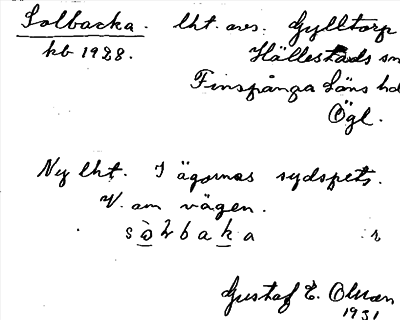 Solbacka. lht. avs. Gylltorp
kb 1928. Hällestads sn
Finspånga läns hd
Ögl.
Ny lht. I ägornas sydspets.
V. om vägen.
Gustaf E. Olsson
1931